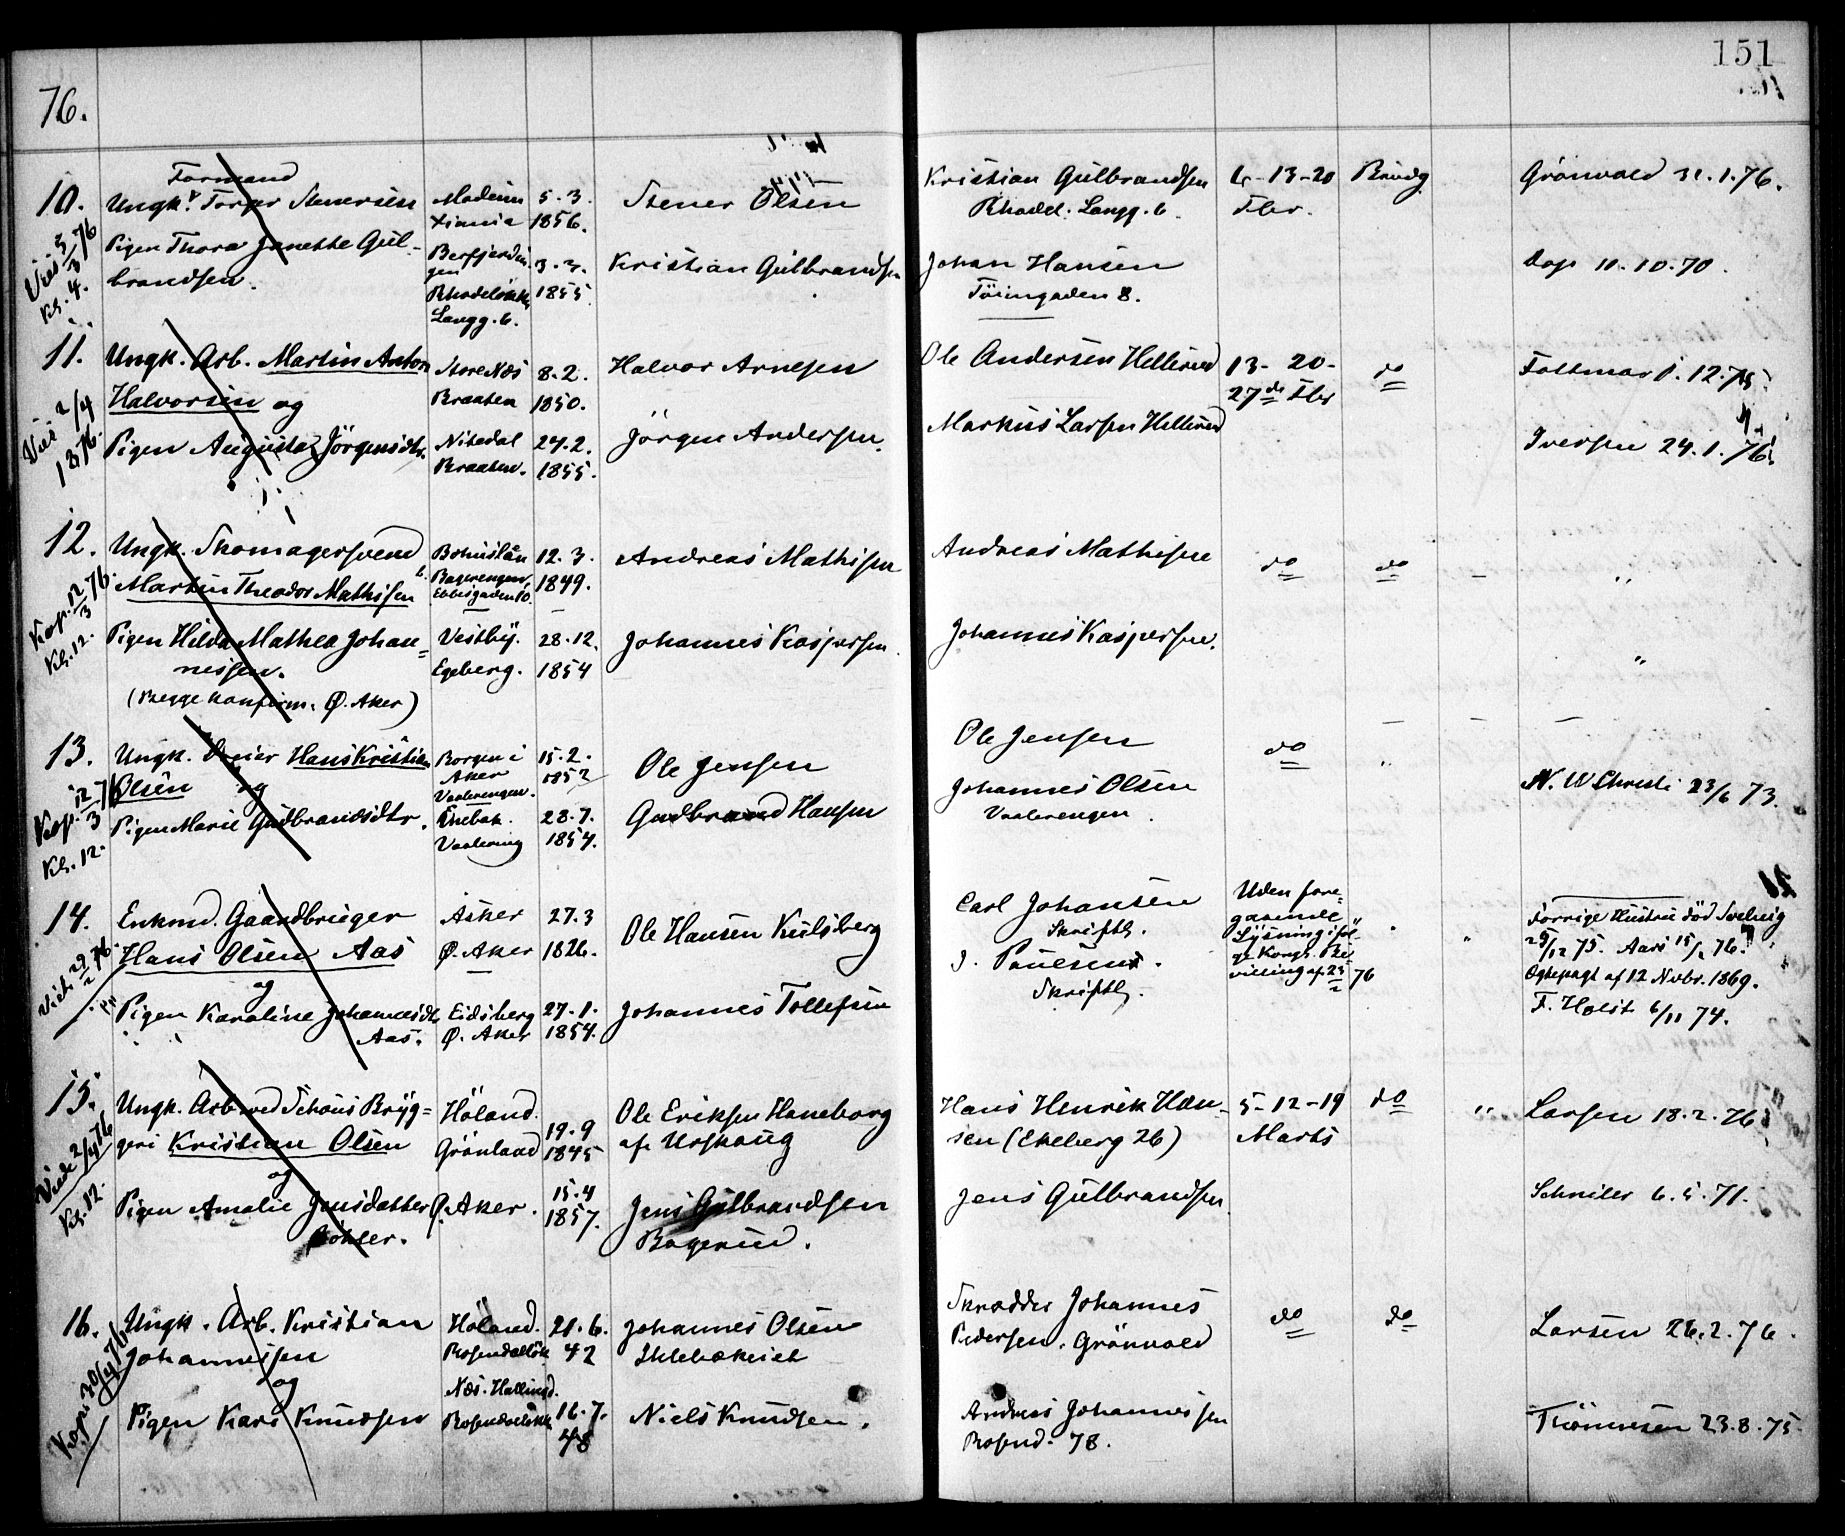 76.
151
10.
Viet 3/3 76
Kl. 4.
Formand
Ungk. Torger Stenersen
Pigen Thora Janette Gul-
brandsen.
Modum
Xiania
5. 3.
1856.
Rhodeløkken
Langg. 6.
3. 3.
1855.
Stener Olsen
Kristian Gulbrandsen
Kristian Gulbrandsen
Rhodel. Langg. 6.
Johan Hansen
Töiengaden 8.
6-13-20
Fbr.
Brudg
Grönvold 31.1.76.
Dop 11.10.70.
11.
Viet 2/4
76.
Ungk. Arb. Martin Anton
Halvorsen og
Pigen Augusta Jörgensdtr.
Store Næs
Braaten
8. 2.
1850.
Nitedal
Braaten.
24. 2.
1855.
Halvor Arnesen
Jörgen Andersen.
Ole Andersen Hellerud
Markus Larsen Hellerud
13- 20-
27de Fbr
do
12.75
Iversen 24.1.76.
12.
Kop. 12/3 76.
Kl. 12.
Ungk. Skomagersvend
Martin Theodor Mathisen
Pigen Hilda Mathea Johan=
nessen.
(Begge konfirm. Ø. Aker)
Bohuslän
12. 3.
1849.
Vestby.
Egeberg.
28. 12.
1854
Andreas Mathisen
Johannes Kaspersen.
Andreas Mathisen
Johannes Kaspersen.
do
do
–
"
"
13.
Kop. 12/3 76
Kl. 12.
Ungk. Hans Kristian
Olsen og
Pigen Marie Gudbrandsdtr.
Borgen i
Aker
Vaalerengen.
15. 2.
1852
Enebak.
Vaalereng
28. 7.
1854.
Ole Jensen
Gudbrand Hansen
Ole Jensen
Johannes Olsen
Vaalerengen.
do
"
N. W Christi 23/6 73.
14.
Viet 29/2 76.
Enkmd. Gaardbruger
Hans Olsen Aas
og
Pigen Karoline Johannesdtr
Aas.
Asker
Ø. Aker
27. 3
1826.
Eidsberg
Ø. Aker
27. 1.
1854.
Ole Hansen Kulsberg
Johannes Tollefsen
Carl Johansen
Skriftlg.
J. Paulsen.
Skriftlg.
Uden fore-
gaaende
Lysning iföl-
ge Kongl. Be-
villing af 23/2 76
"
"
Forrige Hustru död Solveig
25/12 75. Aars 15/2 76.
Ægtepagt af 12 Novbr. 1869.
F. Holst 6/11 74.
15.
Viede 2/4 76
Kl. 12.
Ungk. Arb. ved Schous Bryg=
geri Kristian Olsen
og
Pigen Amalie Jensdatter
Höland.
Grönland
19. 9
1845
Ø. Aker.
15. 4
1857.
Ole Eriksen Haneborg
af Urskoug
Jens Gulbrandsen
Bogerud.
Hans Henrik Han-
sen (Ekeberg 26)
Jens Gulbrandsen.
5-12-19
Marts
do
"
Larsen 18.2.76
Schniler 6.5.71.
16.
Kop. 30/4 76
Ungk. Arb. Kristian
Johannessen
og
Pigen Kari Knudsen
Höland.
Rosendallök
21. 6.
42
Næs. Hallingd.
Rosendallök
16. 7.
48
Johannes Olsen
Niels Knudsen.
Skrædder Johannes
Pedersen. Grönvold
Andreas Johannessen
Rosend. 78.
do
do
Larsen 26.2.76.
Thönnesen 23.8.75.